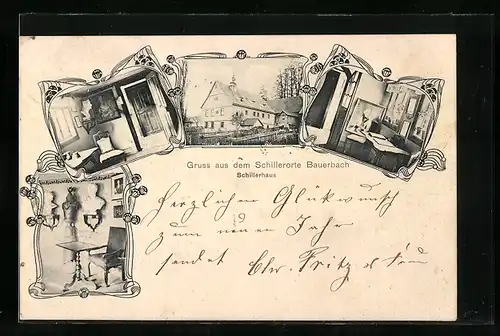 Gruss aus dem Schillerorte Bauerbach
Schillerhaus
Herzlichen Glükwunsch
zum neuen Jahr
sendet Fritz